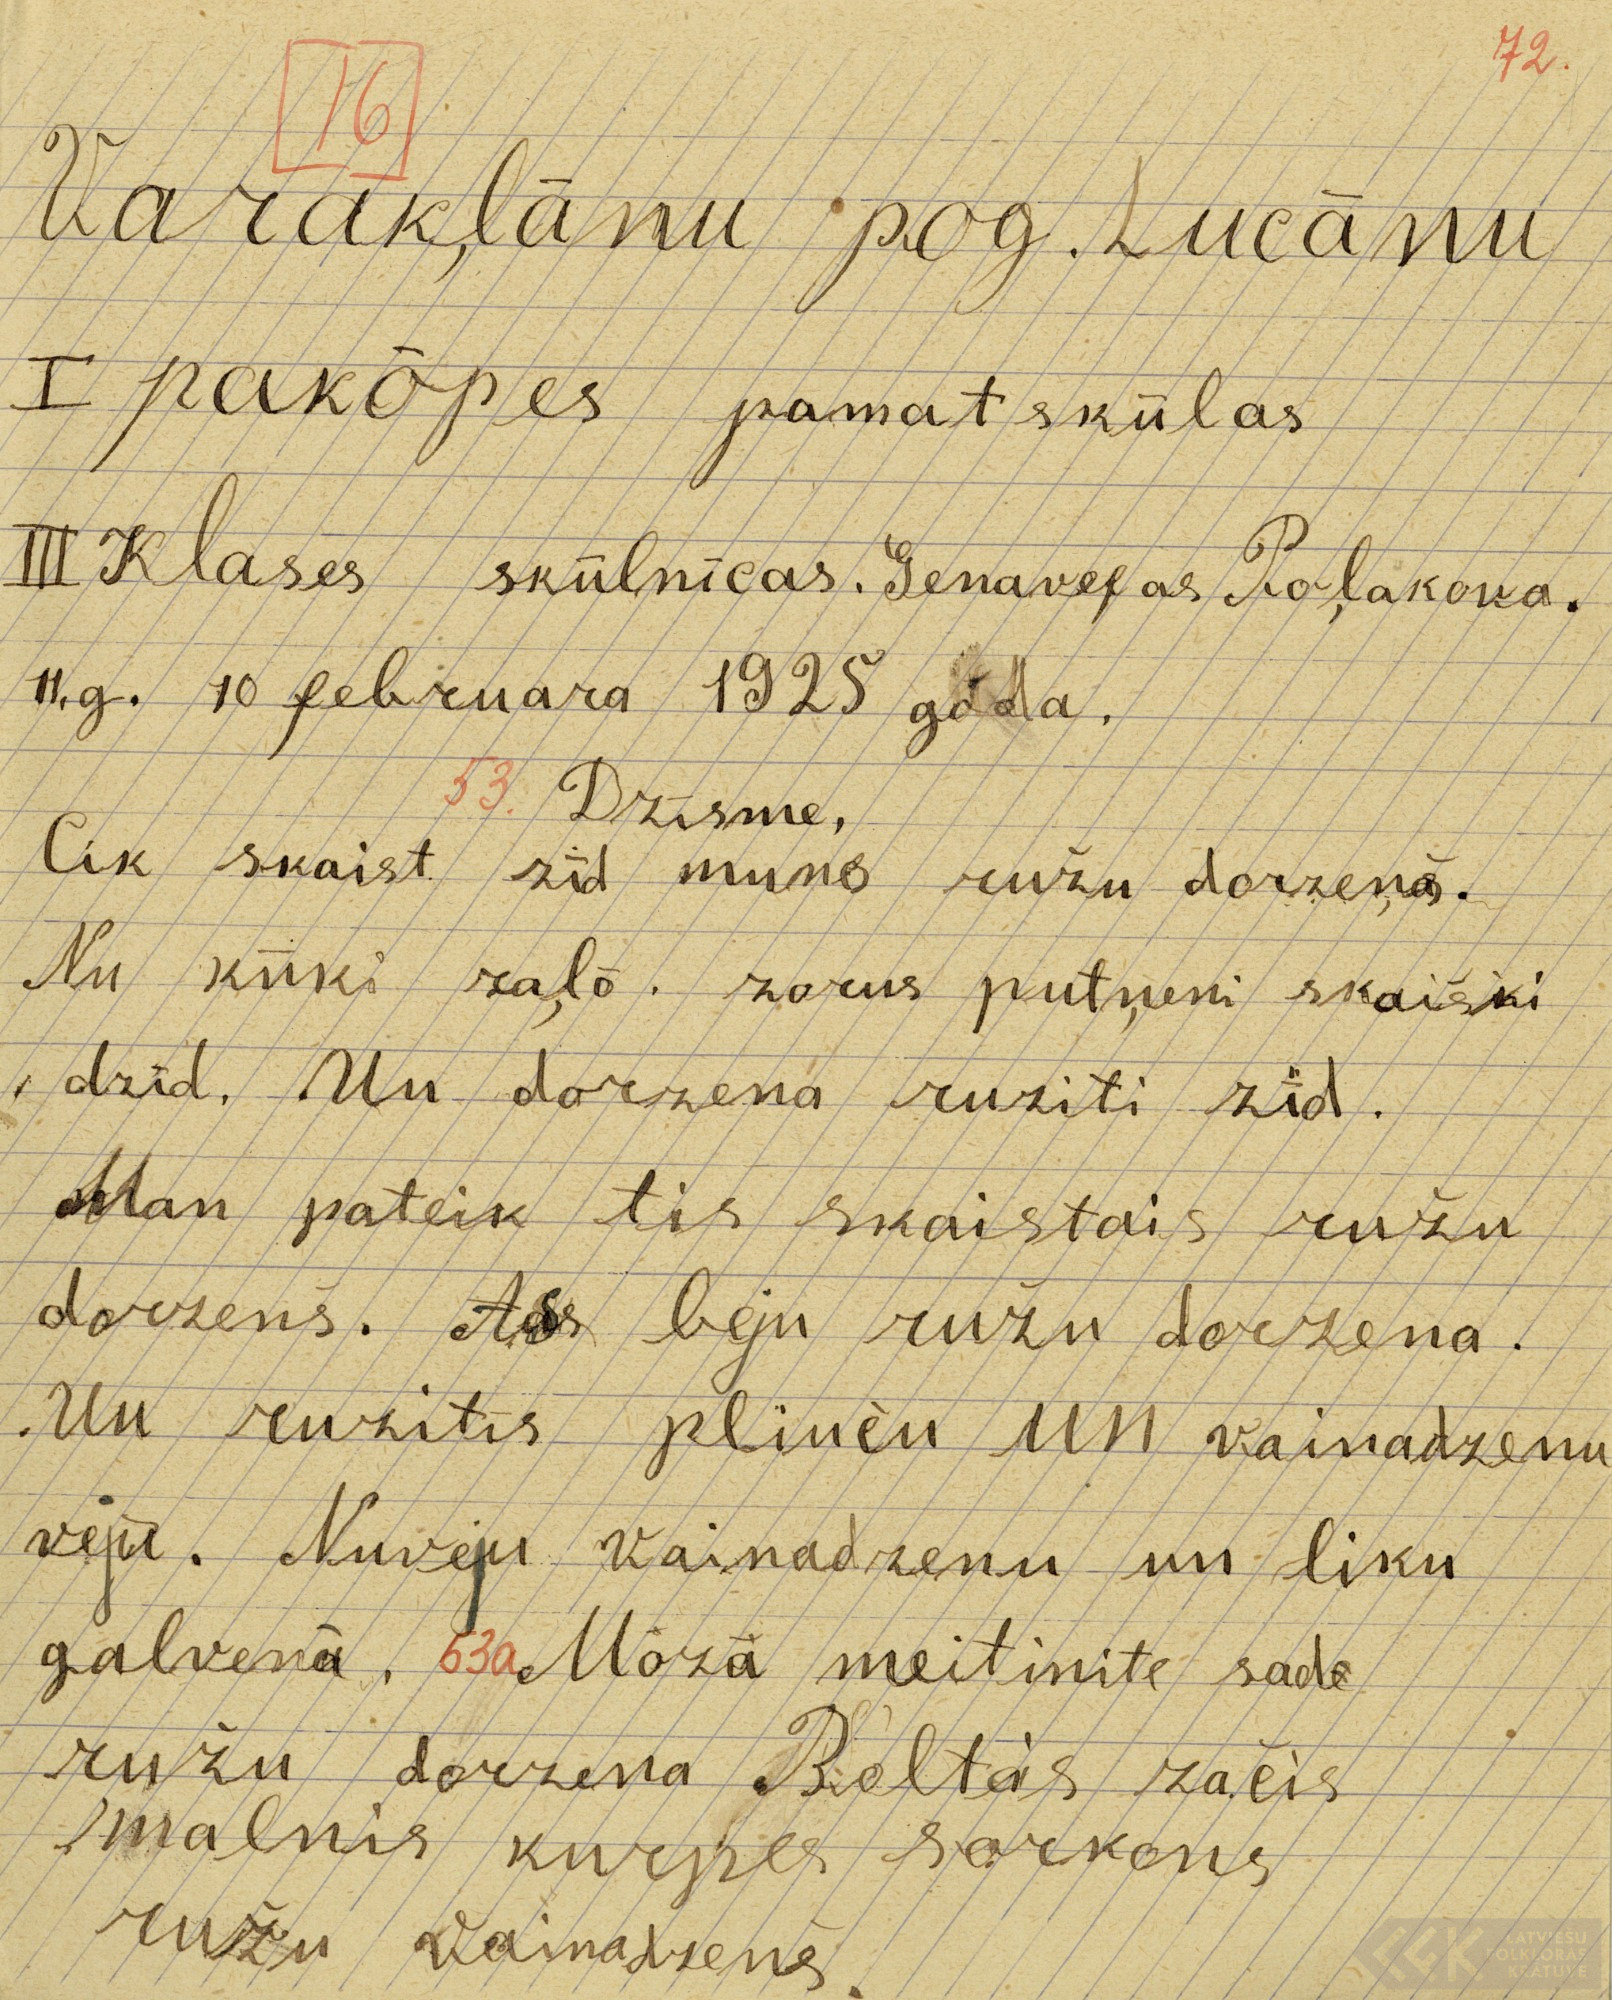 72.
16
Varākļānu pog. Lucānu
I pakōpes pamatskūlas
III Klases skūlnīcas. Genavefas Poļakova.
11.g. 10 februara 1925 goda.
53. Dzīsme,
Cik skaist zīd muns ružu dorzeņš.
Nu kūki zaļō. zorus putņeni skaiški
dzīd. Un dorzena ruziti zīd.
Man pateik tis skaistais ružu
dorzenš. As beju ružu dorzena.
Un ruzitis pliuču un vainadzenu
veju. Nuveju vainadzenu un liku
galvenā. 53a Mozā meitinite sade
ružu dorzena Boltas začis
malnis kurpes sorkons
ružu vainadzenš.
LATVIEŠU
FOLKLORAS
KRĀTUVE